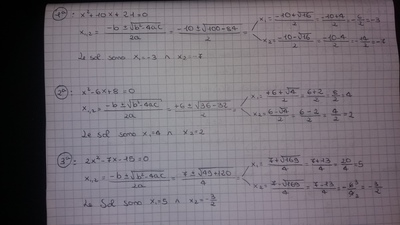 1ª: x²+10x+21=0
x₁,₂= (-b ± √(b²-4ac))/2a = (-10 ± √(100-84))/2 = x₁= (-10+√16)/2 = (-10+4)/2 = -6/2 = -3
x₂= (-10-√16)/2 = (-10-4)/2 = -14/2 = -7
Le sol sono x₁=-3 ∧ x₂=-7
2ª: x²-6x+8=0
x₁,₂= (-b ± √(b²-4ac))/2a = (+6 ± √(36-32))/2 = x₁= (+6+√4)/2 = (6+2)/2 = 8/2 = 4
x₂= (6-√4)/2 = (6-2)/2 = 4/2 = 2
Le sol sono x₁=4 ∧ x₂=2
3ª: 2x²-7x-15=0
x₁,₂= (-b ± √(b²-4ac))/2a = (7 ± √(49+120))/4 = x₁= (7+√169)/4 = (7+13)/4 = 20/4 = 5
x₂= (7-√169)/4 = (7-13)/4 = -6³/4₂ = -3/2
Le Sol sono x₁=5 ∧ x₂=-3/2